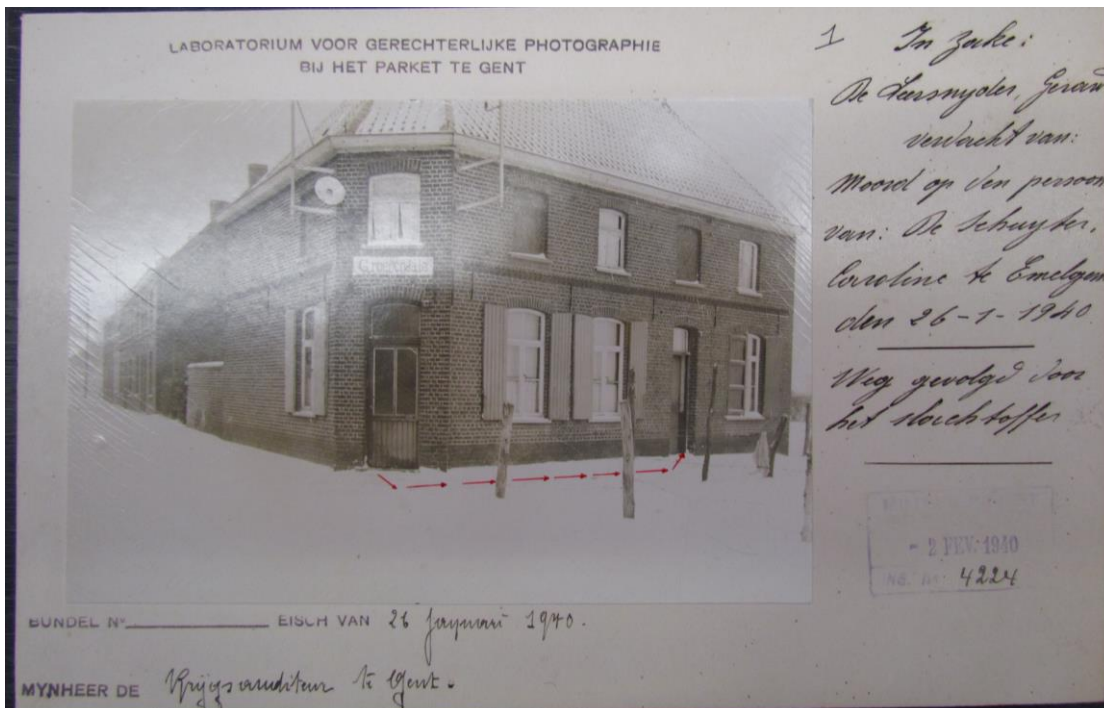 LABORATORIUM VOOR GERECHTERLIJKE PHOTOGRAPHIE
BIJ HET PARKET TE GENT
1 In zake:
De Leersnyder, Gerard
verdacht van:
Moord op den persoon
van: De Schuyter,
Caroline te Emelgem
den 26-1-1940
Weg gevolgd door
het slachtoffer
- 2 FEV. 1940
4224
BUNDEL No EISCH VAN 26 januari 1940.
MYNHEER DE Krijgsauditeur te Gent.